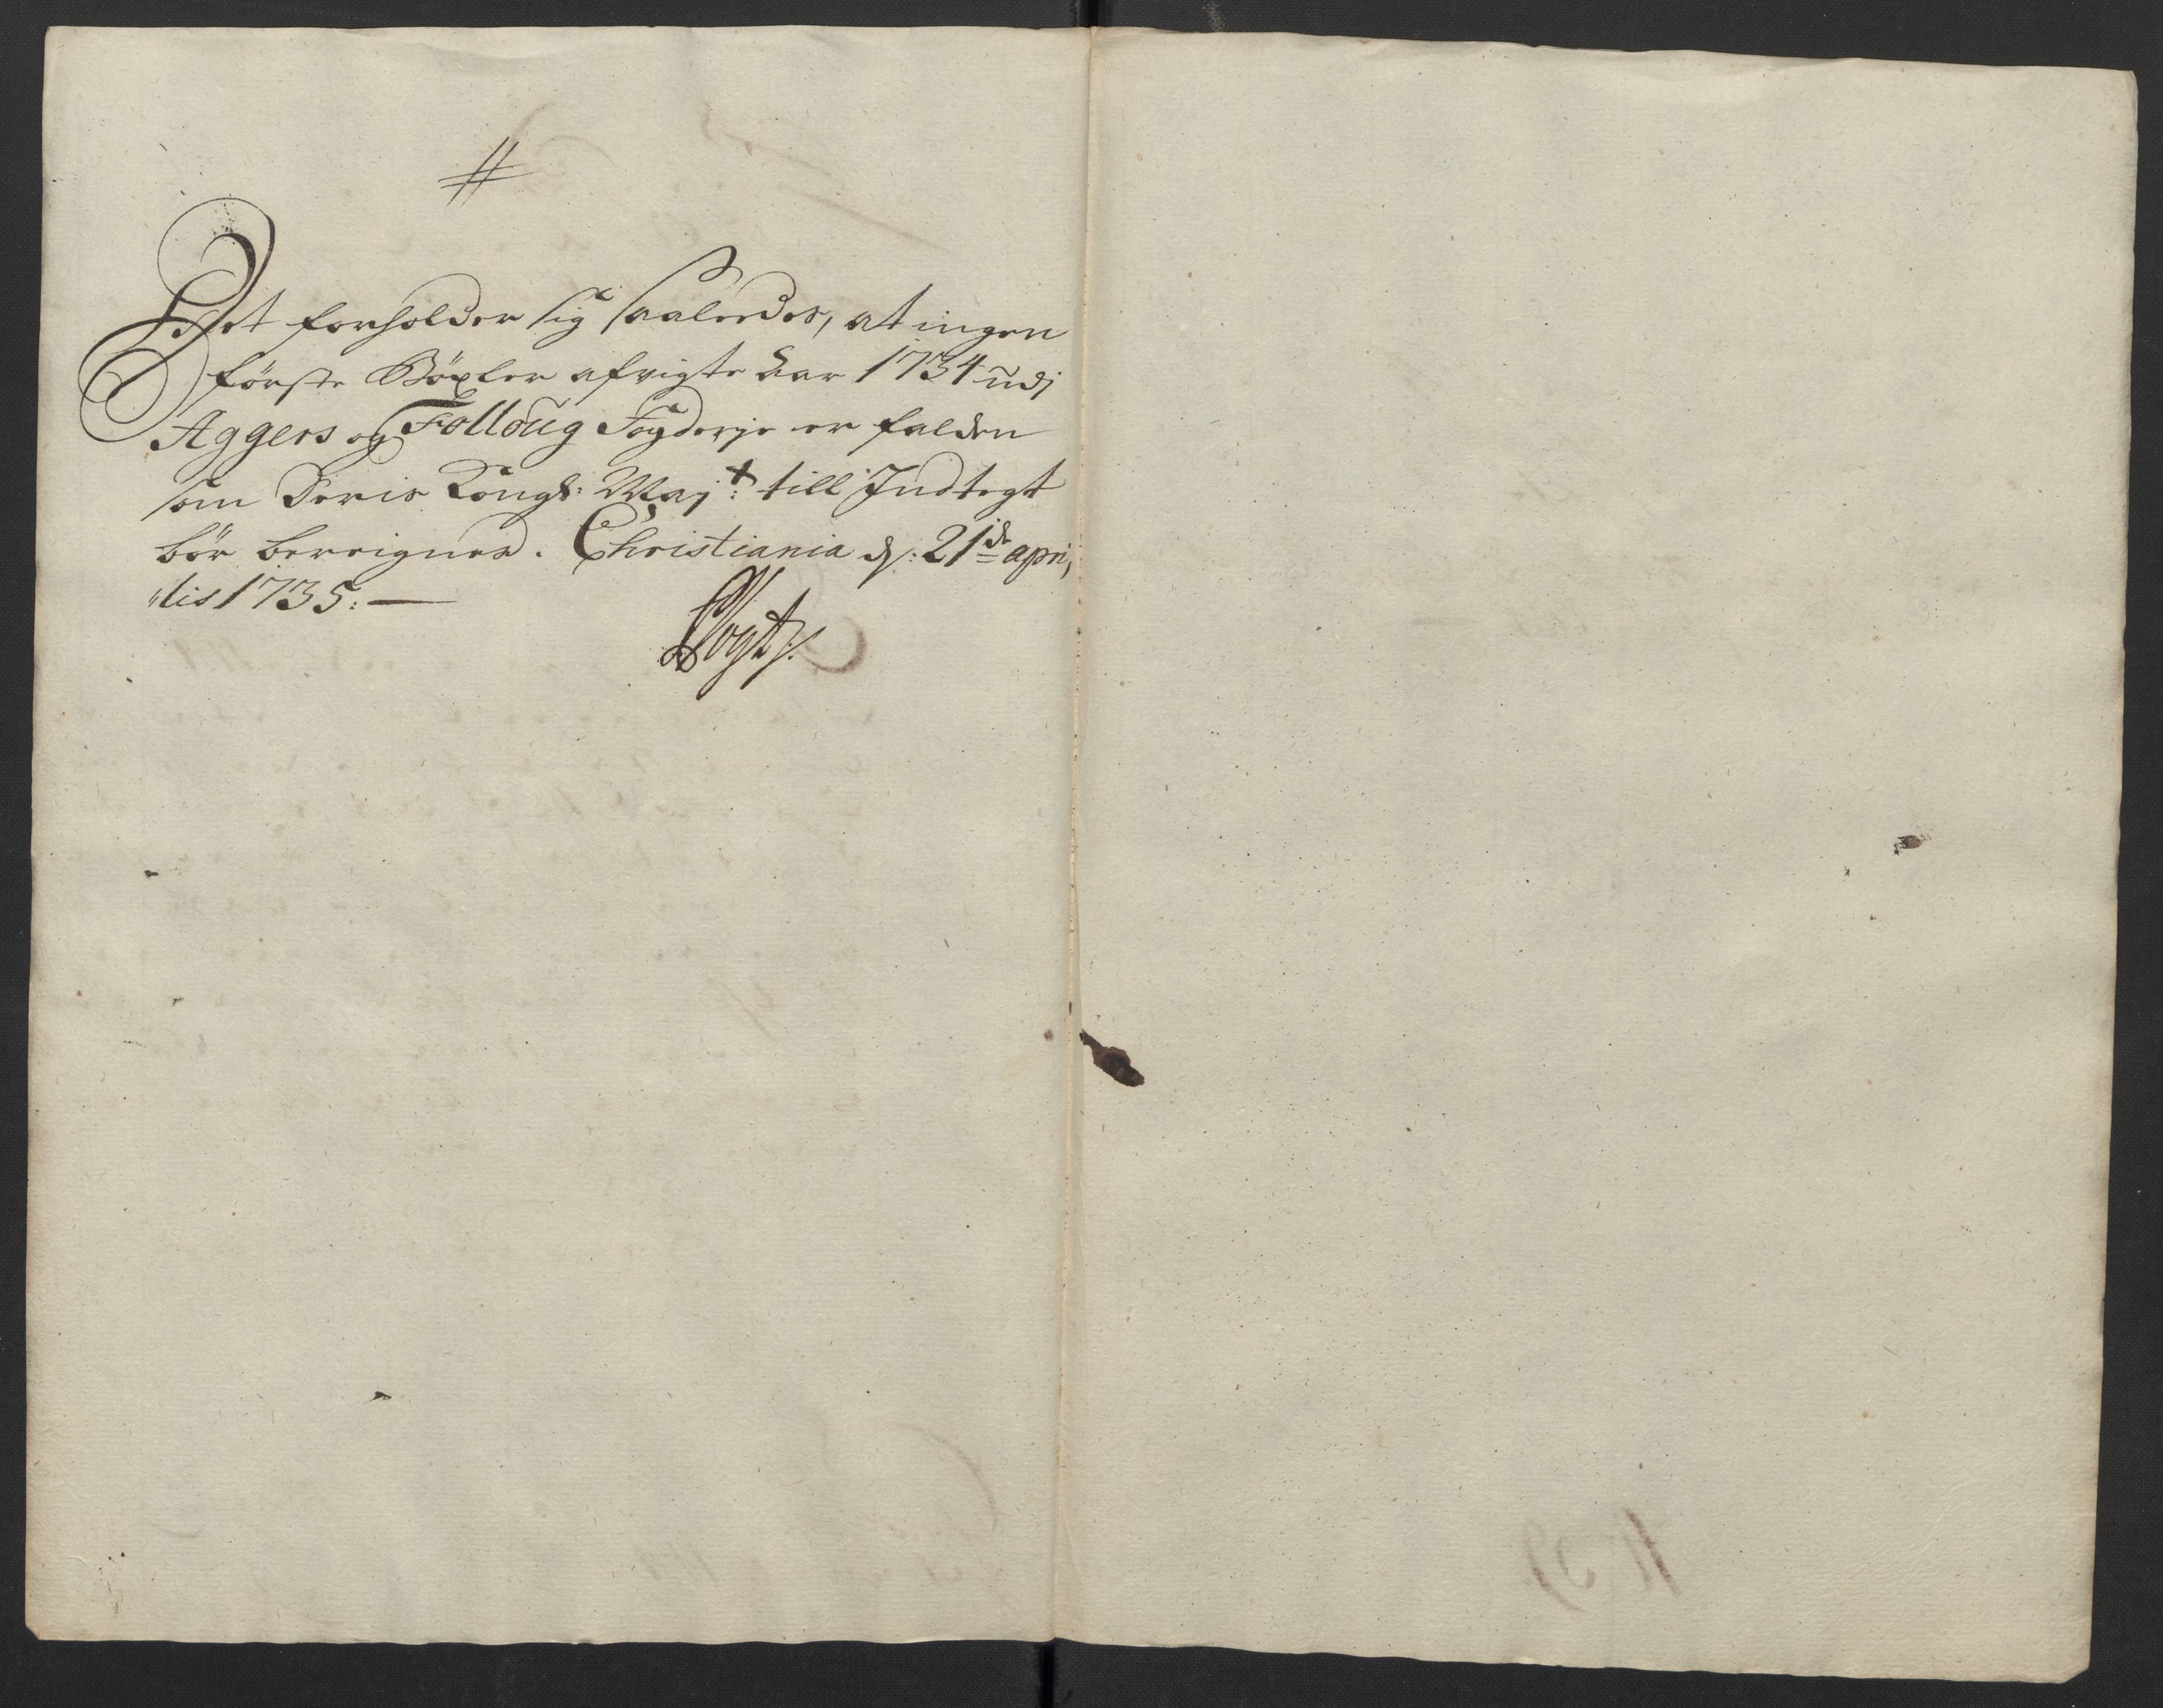 #
Det forholder sig saaleedes, at ingen
förste Böxler afvigte Aar 1734 udj
Aggers og Folloug Fogderje er falden
som Deris Kongl: Maj:t till Indtegt
bör bereignes. Christiania d: 21de apri,
„lis 1735:
Vogt